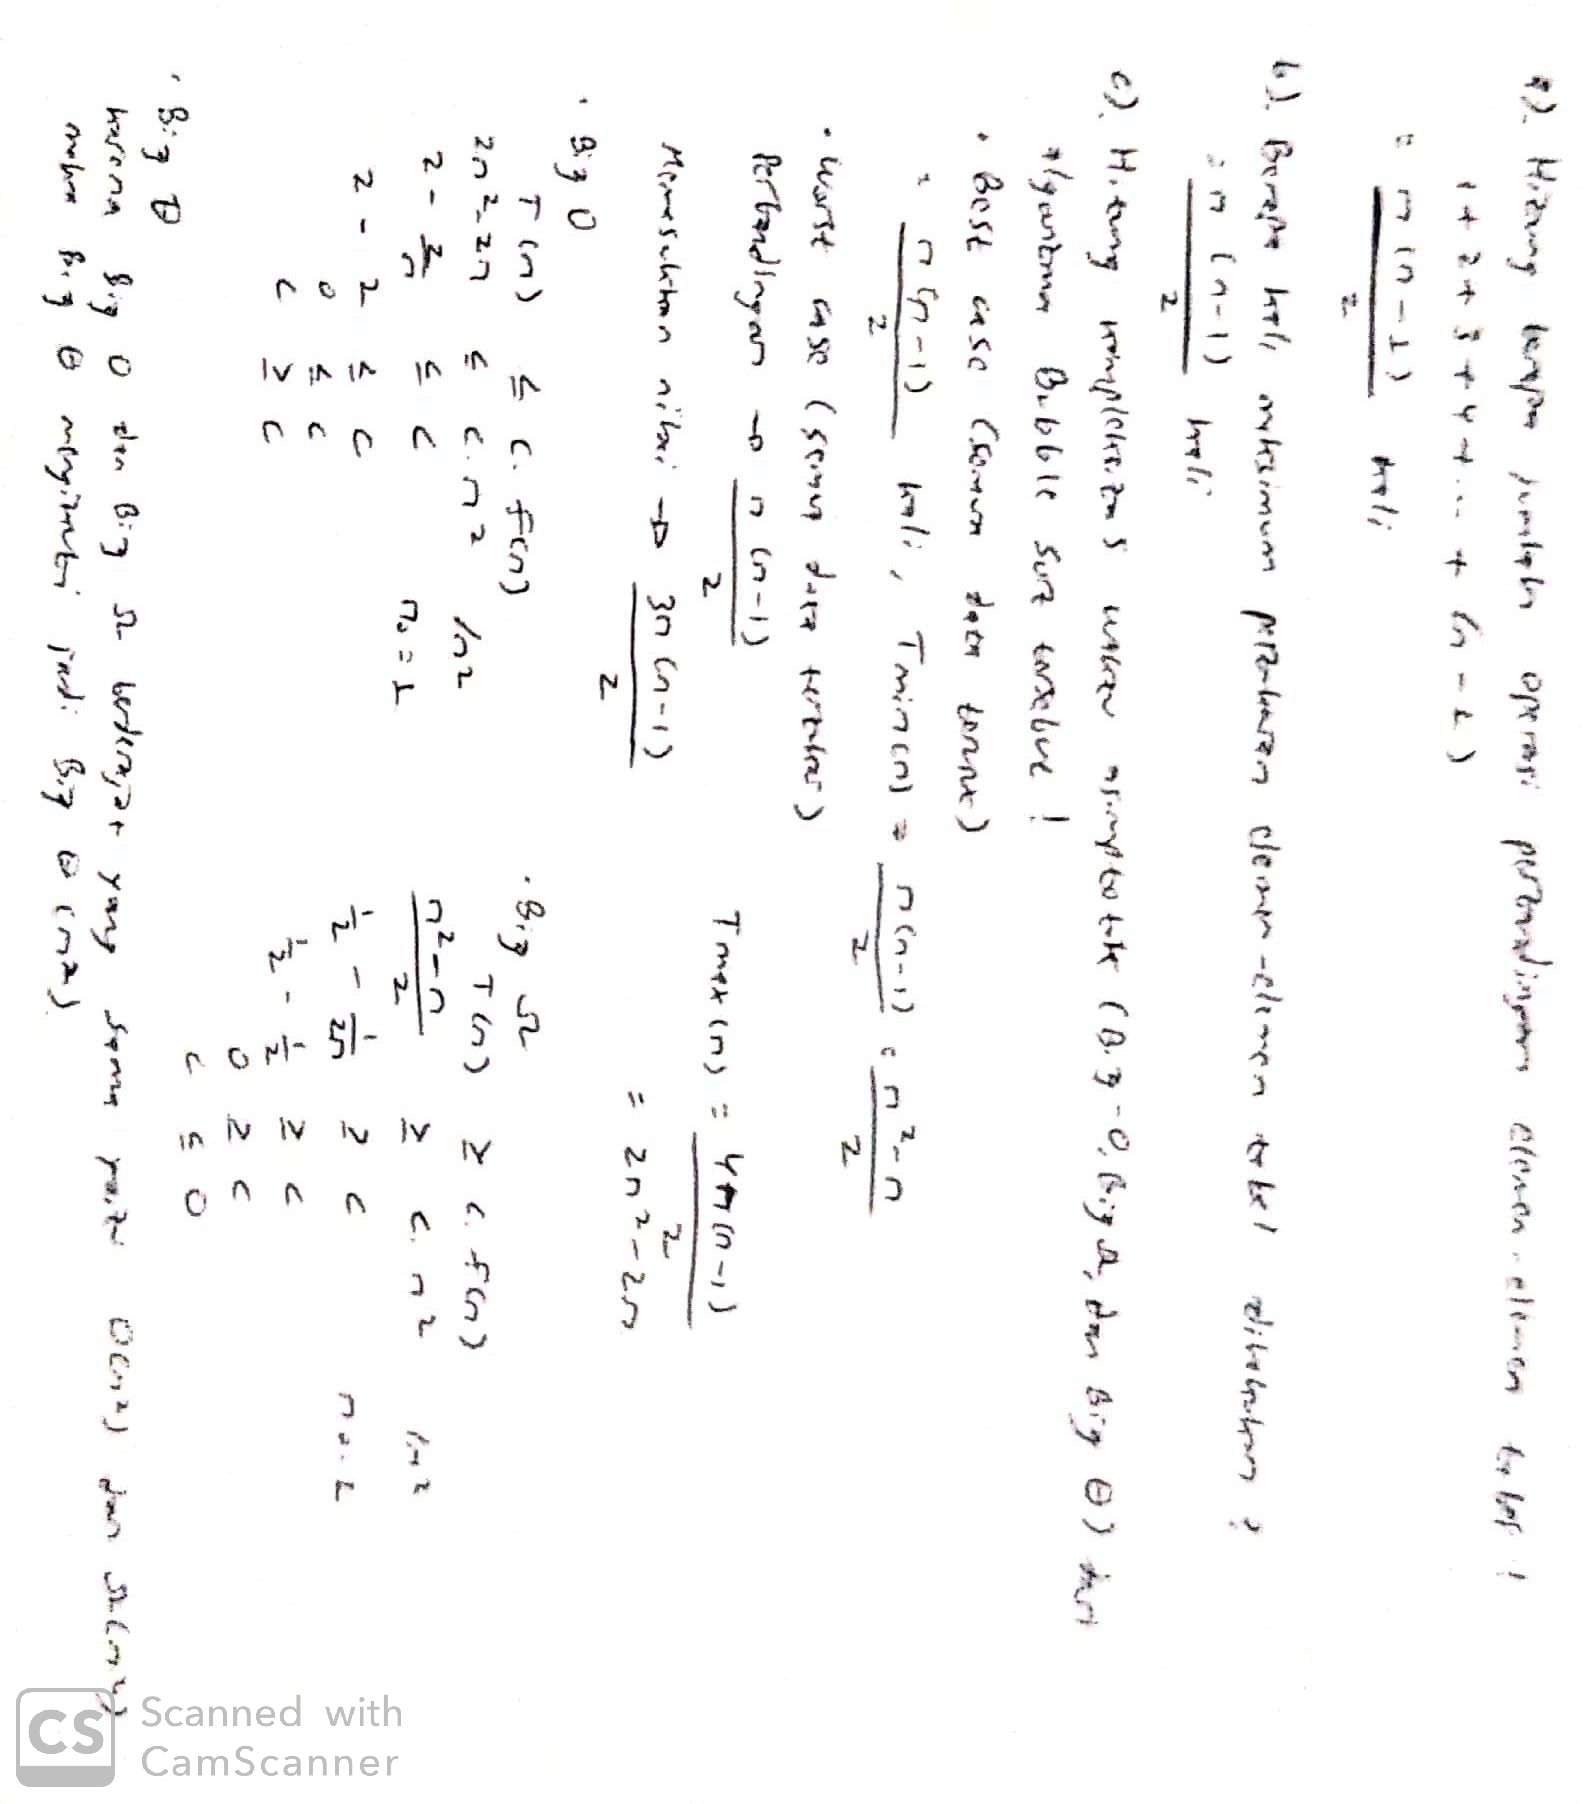 a). Hitung berapa jumlah operasi perbandingan elemen-elemen tabel !
1 + 2 + 3 + 4 + ... + (n - 1)
= n (n - 1) / 2 kali
b). Berapa kali maksimum pertukaran elemen-elemen tabel dilakukan ?
= n (n-1) / 2 kali
c). Hitung kompleksitas waktu asimptotik (Big-O, Big Ω, dan Big Θ) dari
algoritma Bubble Sort tersebut !
• Best case (semua data terurut)
= n (n-1) / 2 kali, Tmin(n) = n(n-1) / 2 = n² - n / 2
• Worst case (semua data terbalik)
Perbandingan → n (n-1) / 2
Tmax(n) = 4n(n-1) / 2
Memasukkan nilai → 3n (n-1) / 2
= 2n² - 2n
• Big O
T(n) ≤ c. f(n)
2n² - 2n ≤ c. n² /n²
2 - 2/n ≤ c n₀ = 1
2 - 2 ≤ c
0 ≤ c
c ≥ 0
• Big Ω
T(n) ≥ c. f(n)
n² - n / 2 ≥ c. n² /n²
1/2 - 1/2n ≥ c n₀ = 1
1/2 - 1/2 ≥ c
0 ≥ c
c ≤ 0
• Big Θ
karena Big O dan Big Ω berderajat yang sama yaitu O(n²) dan Ω(n²)
maka Big Θ jadi Big Θ (n²)
Scanned with
CamScanner
CS